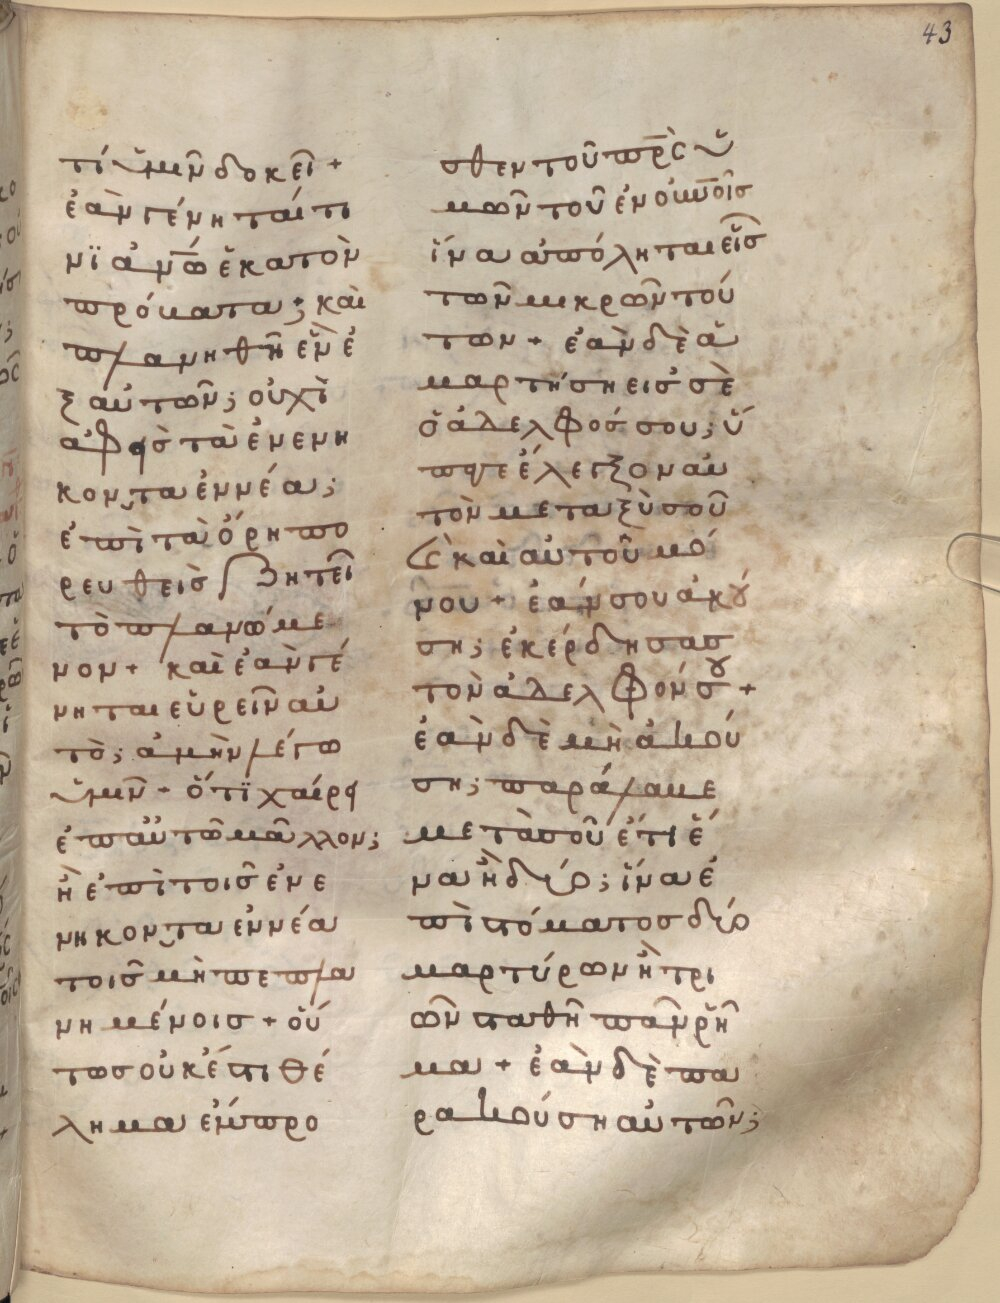 43
τί ὑμῖν δοκεῖ +
ἐὰν γένηται τι
νϊ ἀν̅ω̅ ἑκατὸν
πρόβατα ; καὶ
πλανηθῆ ἓν ἐ
ξ αὐτῶν ; οὐχῒ
ἀφεὶς τὰ ἐνενη
κοντα ἐννέα ;
ἐπὶ τὰ ὄρη πο
ρευθεὶς ζητεῖ
τὸ πλανώμε
νον + καὶ ἐὰν γέ
νηται εὑρεῖν αὐ
τὸ ; ἀμὴν λέγω
ὑμῖν + ὅτϊ χαίρει
ἐπ αὐτῶ μᾶλλον ;
ἢ ἐπὶ τοῖς ἐνε
νηκοντα εννέα
τοῖς μὴ πεπλα
νημένοις + οὕ
τως οὐκ έστι θέ
λημα ἔμπρο
σθεν τοῦ πρ̅ς ὑ
μῶν τοῦ ἐν οὐν̅οῖς
ἵνα ἀπόληται εἷς
τῶν μικρῶν τού
των + ἐὰν δὲ ἁ
μαρτήση εις σὲ
ὁ ἀδελφός σου ; ὕ
παγε έλεγξον αὐ
τὸν μεταξὺ σοῦ
ϛ̀ καὶ αὐτοῦ μό
νου + ἐάν σου ἀκού
ση ; ἐκέρδησας
τὸν ἀδελφόν σου +
ἐὰν δὲ μὴ ἀκού
ση ; παράλαβε
μετὰ σοῦ ἔτι ἕ
να ἢ δύο ; ἵνα ἐ
πὶ στόματος δύο
μαρτύρων ἢ τρι
ῶν σταθῆ πᾶν ῥῆ
μα + ἐὰν δὲ πα
ρακούση αὐτῶν ;